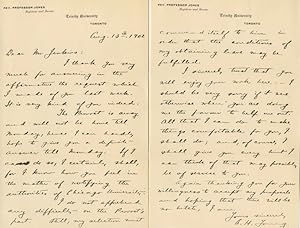 REV. PROFESSOR JONES
Registrar and Bursar
Trinity University
TORONTO
Aug. 13th 1902
Dear Mr Jenkins:
I thank you very
much for answering in the
affirmative the request which
I made of you last week.
It is very kind of you indeed.
The Provost is away
and will not be here till
Monday, hence I can hardly
hope to give you a definite
answer till Monday. If I
can do so, I certainly shall,
for I know how you feel in
the matter of notifying the
authorities of Chicago University.
I do not apprehend
any difficulty on the Provost's
part. My selection will
REV. PROFESSOR JONES
Registrar and Bursar
Trinity University
TORONTO
commend itself to him in
order that the conditions of
my obtaining leave may be
fulfilled.
I sincerely trust that you
will enjoy your work here. I
should be very sorry if it were
otherwise when you are doing
me the favour to help me out.
All that I can do to make
things comfortable for you I
shall do, and of course, I
shall give you any hints I
can think of that may possibly
be of service to you.
Again thanking you for your
willingness to accept my proposals
and hoping that this will be
no bother, I am
Yours sincerely